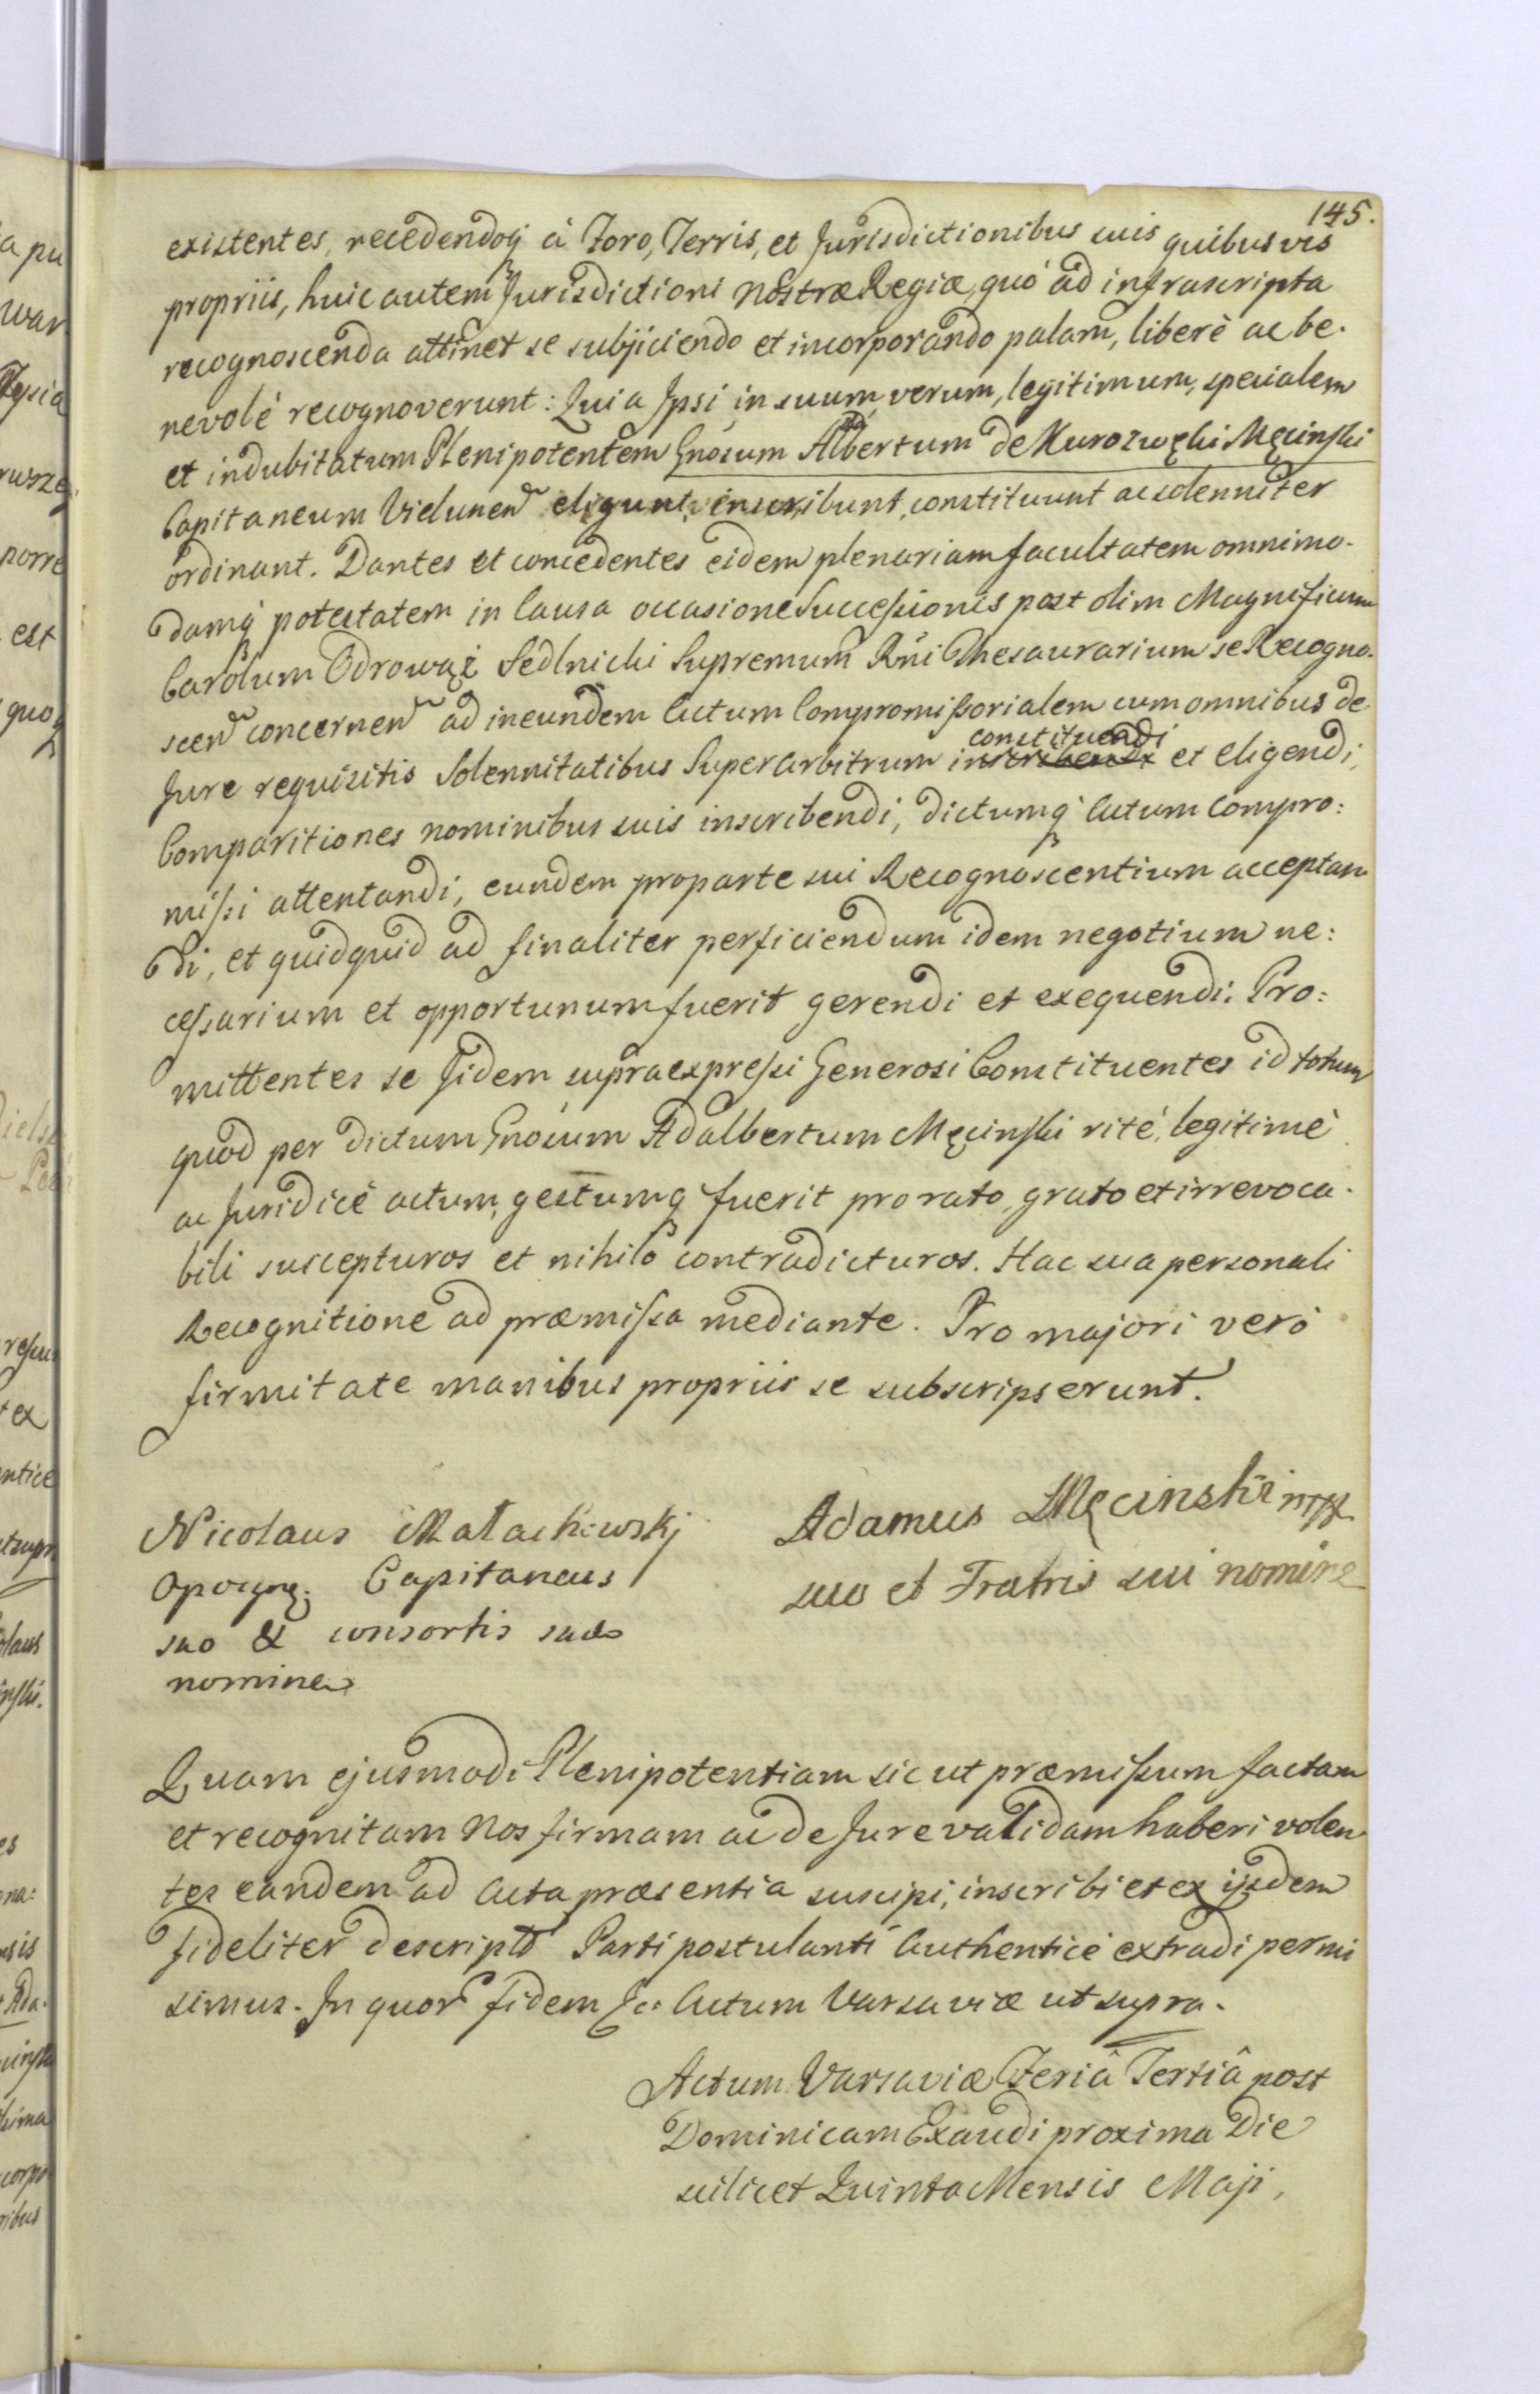 145.
existentes, recedendoq̃ à Foro, Terris, et Jurisdictionibus suis quibusvis
propriis, huic autem Jurisdictioni Nostræ Regiæ, quó ad infrascripta
recognoscenda attinet se subjiciendo et incorporando palam, liberè ac be-
nevolè recognoverunt: Quia Ipsi in suum verum, legitimum, specialem
et indubitatum Plenipotentem Gnosum Albertum de Kurozwęki Męcinski
Capitaneum Vielunen̄ eligunt, inscribunt, constituunt ac solenniter
ordinant. Dantes et concedentes eidem plenariam facultatem omnimo-
damq̃ potestatem in Causa occasione Successionis post olim Magnificum
Carolum Odrowąż Sedlnicki Supremum Rñi Thesaurarium se Recogno-
scen̄ concernen̄ ad ineundem Actum Compromissorialem cum omnibus de
Jure requisitis Solennitatibus Superarbitrum inscribendi constituendi et eligendi,
Comparitiones nominibus suis inscribendi, dictumq̃ Actum Compro:
missi attentandi, eundem pro parte sui Recognoscentium acceptan
di, et quidquid ad finaliter perficiendum idem negotium ne:
cessarium et opportunum fuerit gerendi et exequendi: Pro:
mittentes se Iidem supraexpressi Generosi Constituentes id totum
quod per dictum Gnosum Adalbertum Męcinski rité, legitimè
ac Juridicè actum, gestumq̃ fuerit pro rato, grato et irrevoca-
bili suscepturos et nihilo contradicturos. Hac sua personali
Recognitione ad præmissa mediante. Pro majori veró
firmitate manibus propriis se subscripserunt.
Nicolaus Małachowskj
Opoczn: Capitaneus
suo & consortis suæ
nomine
Adamus Męcinski mpp
suo et Fratris sui nomine
Quam ejusmodi Plenipotentiam sicut præmissum factam
et recognitam Nos firmam ac de Jure validam haberi volen
tes eandem ad Acta præsentia suscipi, inscribi et ex ijsdem
fideliter descript̃ Parti postulanti Authenticè extradi permi
simus. In quor̃ fidem &c: Actum Varsaviæ ut supra.
Actum Varsaviæ Feriâ Tertiâ post
Dominicam Exaudi proxima Die
scilicet Quinta Mensis Maji,